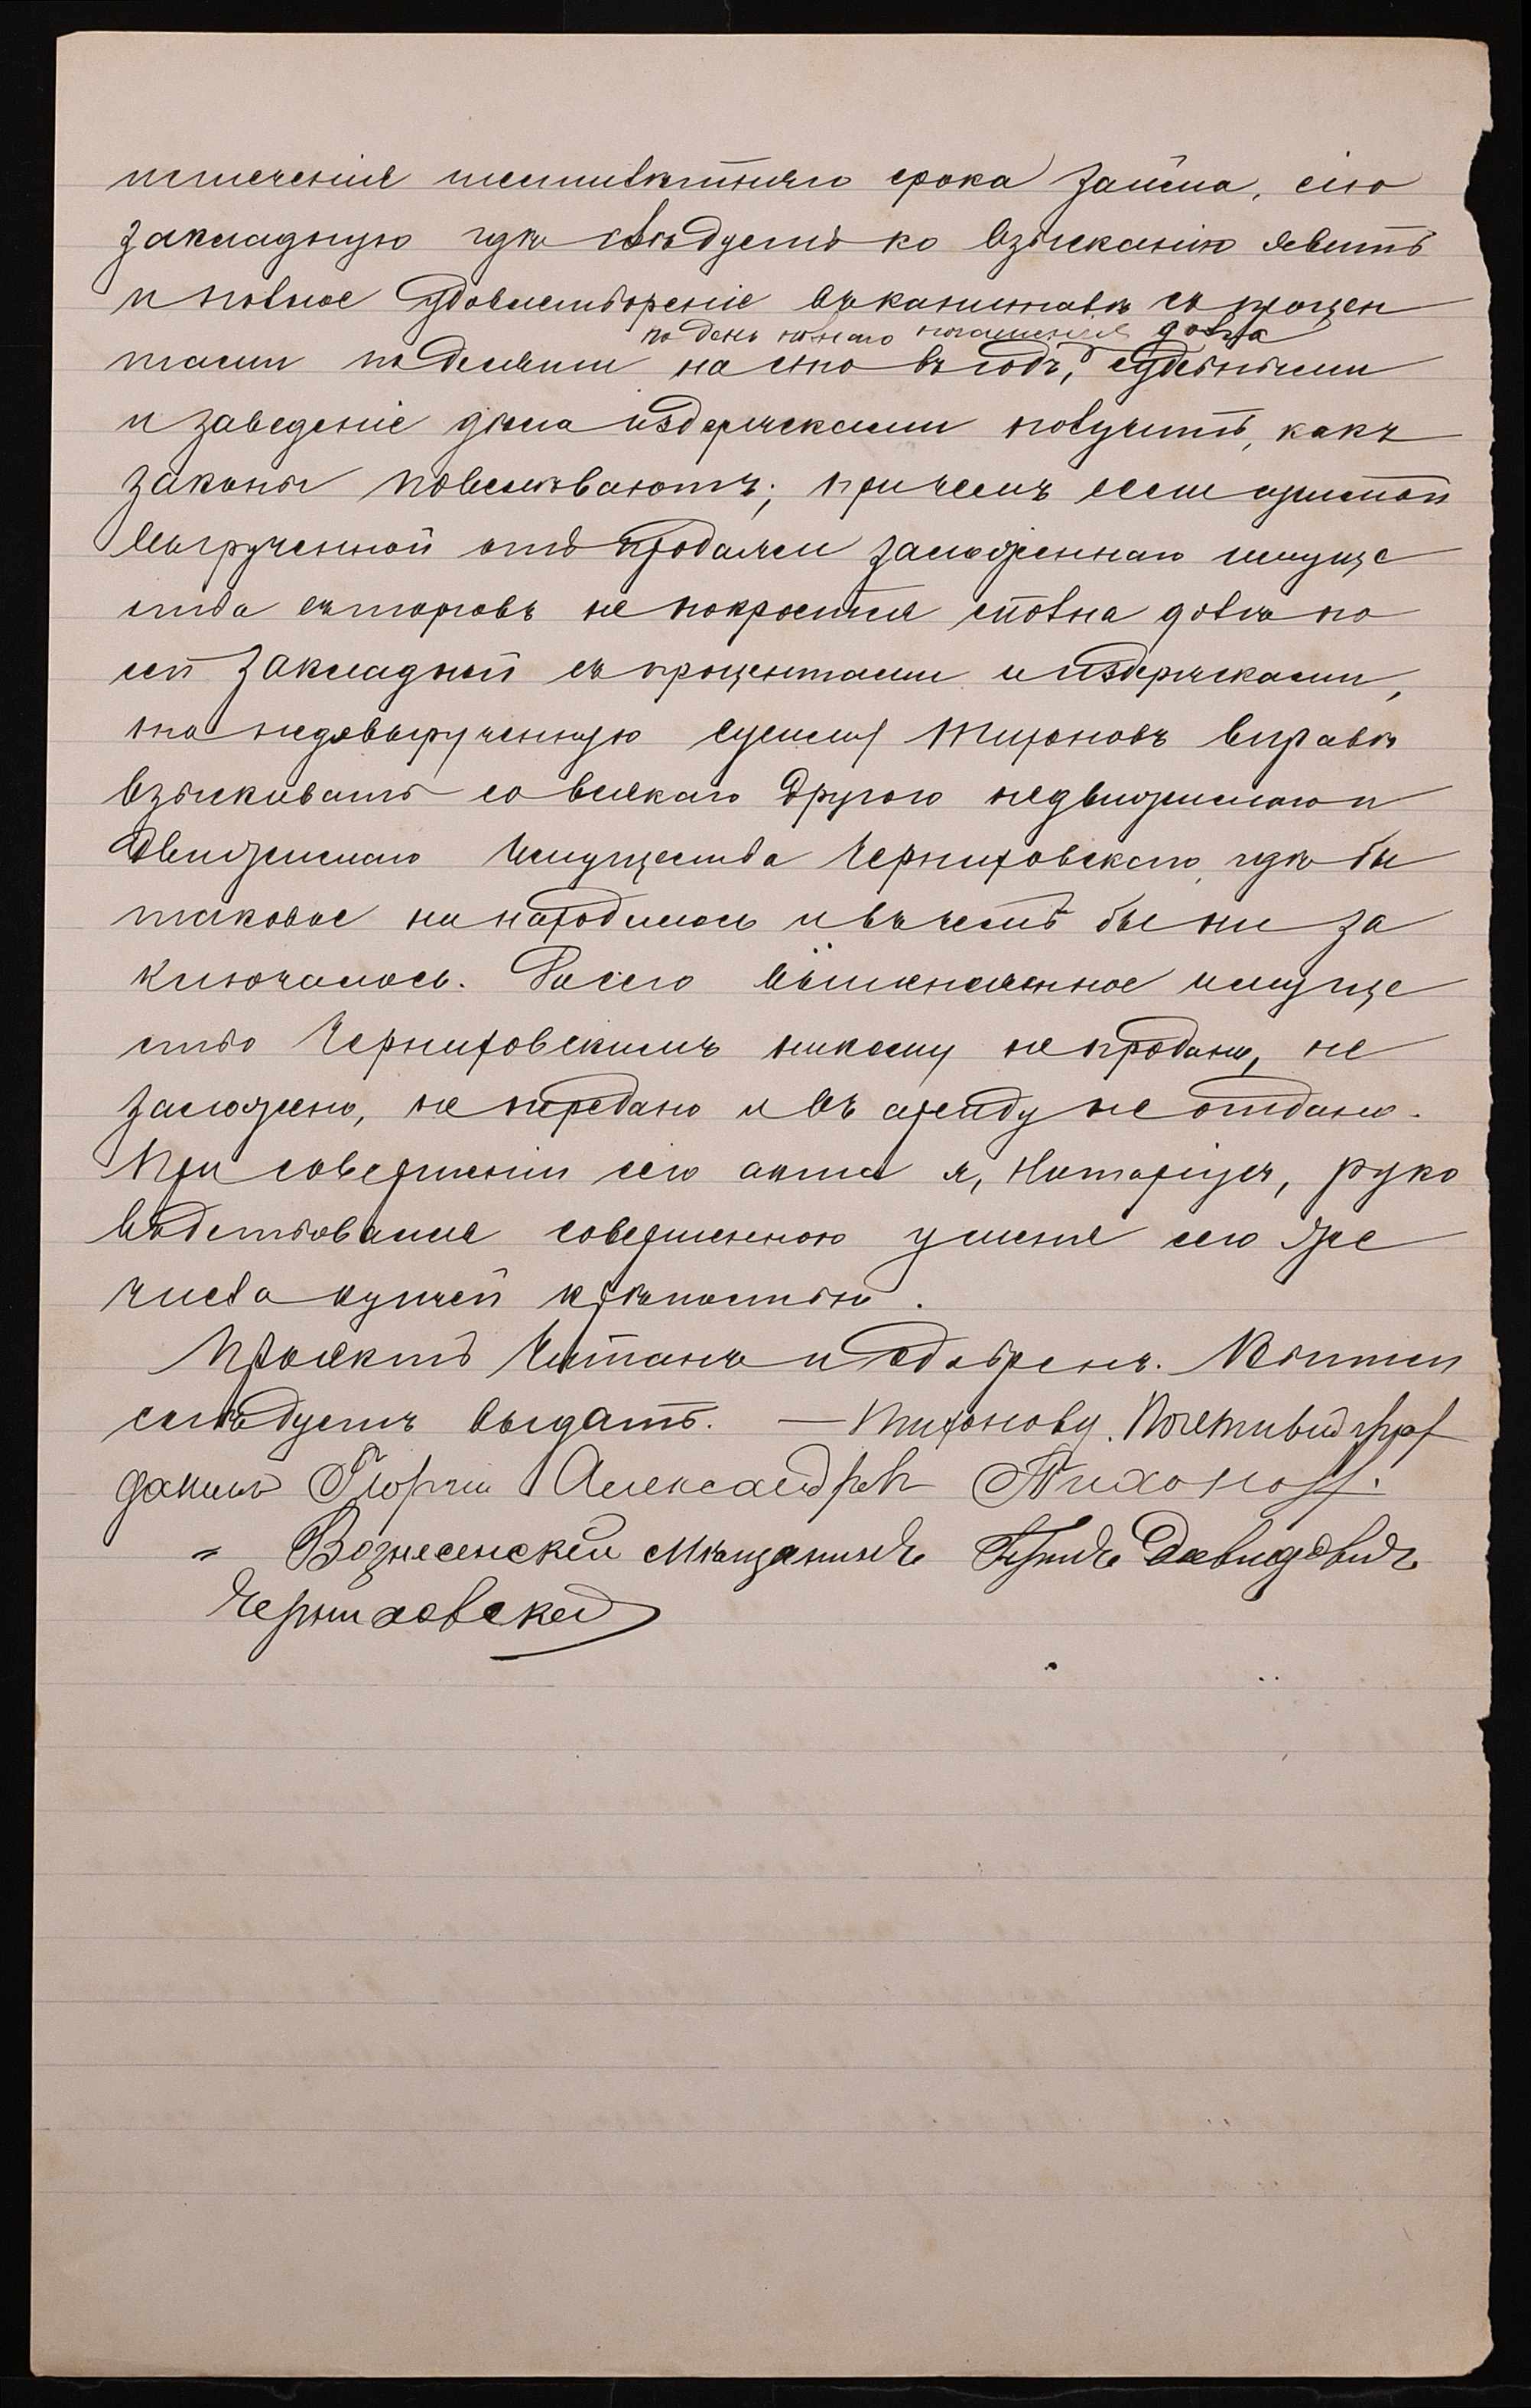 истеченія шестилѣтняго срока займа, сію
закладную гдѣ слѣдуетъ ко взысканію явить
и полное удовлетвореніе въ капиталѣ съ процен
по день полнаго погашенія долга
тами по десяти на сто въ годъ, судебными
и заведеніе дѣла издержками получить, какъ
законы повелѣваютъ; при чемъ если суммой
вырученной отъ продажи заложеннаго имуще
ства съ торговъ не покроется сполна долгъ по
сей закладной съ процентами и издержками,
то недовырученную сумму Тихоновъ вправѣ
взыскивать со всякаго другого недвижимаго и
движимаго имущества Черниховскаго, гдѣ бы
таковое ни находилось и въ чемъ бы ни за
ключалось. До сего вышеписанное имуще
ство Черниховскимъ никому не продано, не
заложено, не передано и въ аренду не отдано.
При совершеніи сего акта я, Нотаріусъ, руко
водствовался совершенною у меня сего же
числа купчей крѣпостью.
Проектъ читанъ и одобренъ. Выпись
слѣдуетъ выдать. — Тихонову. Почетный граж
данинъ Георгій Александровъ Тихоновъ.
" Вознесенскій мѣщанинъ Давидовичъ
Черниховскій